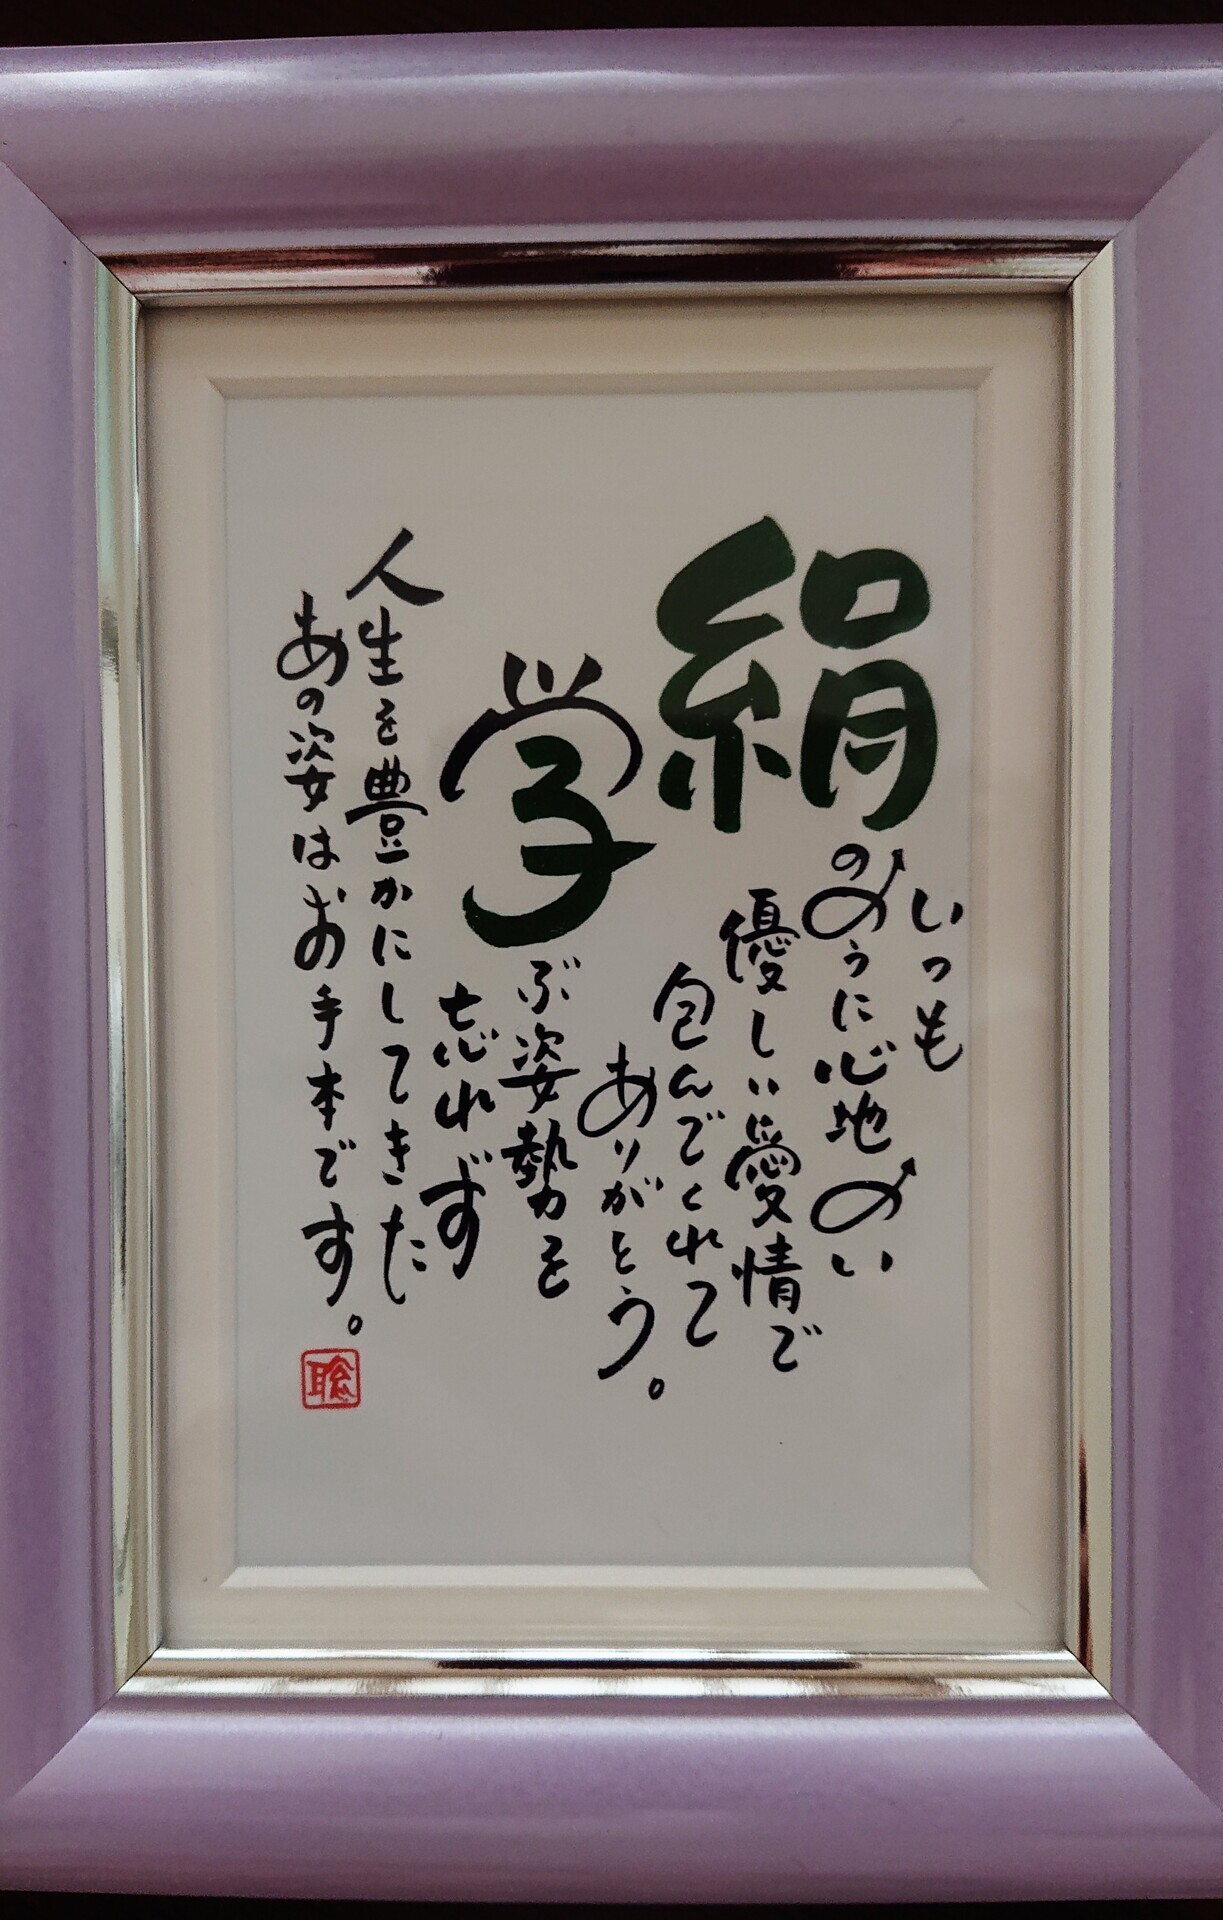 いつも
絹のように心地よい
優しい愛情で
包んでくれて
ありがとう。
学ぶ姿勢を
忘れず
人生を豊かにしてきた
あの姿はお手本です。
聡